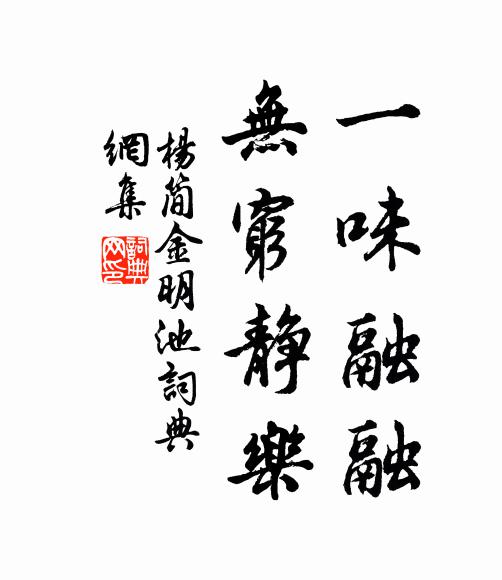 一味融融
無窮靜樂
楊简金明池詞典
網集
詞典
网印